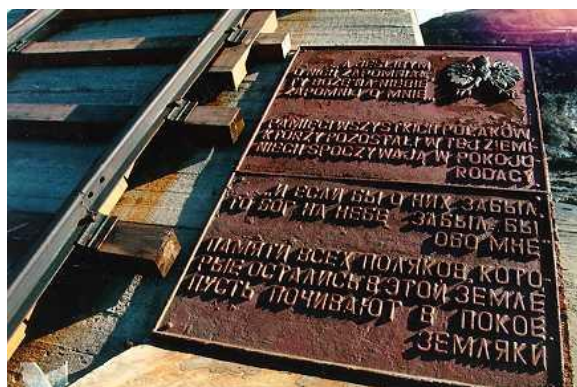 „A JEŚLIBYM
O NICH ZAPOMNIAŁ
TY BOŻE NA NIEBIE
ZAPOMNIJ O MNIE"
PAMIĘCI WSZYSTKICH POLAKÓW,
KTÓRZY POZOSTALI W TEJ ZIEMI
NIECH SPOCZYWAJĄ W POKOJU-
RODACY
„И ЕСЛИ БЫ О НИХ ЗАБЫЛ,
ТО БОГ НА НЕБЕ, ЗАБЫЛ БЫ
ОБО МНЕ"
ПАМЯТИ ВСЕХ ПОЛЯКОВ, КОТО-
РЫЕ ОСТАЛИСЬ В ЭТОЙ ЗЕМЛЕ
ПУСТЬ ПОЧИВАЮТ В ПОКОЕ.
ЗЕМЛЯКИ